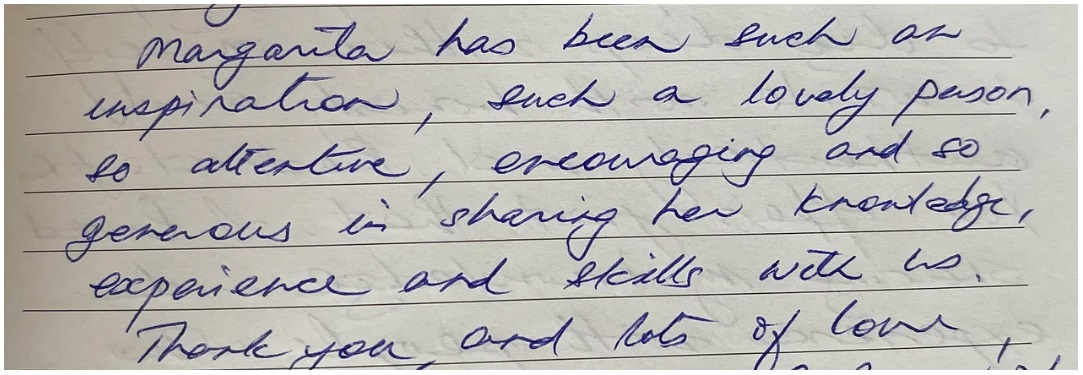 Margarita has been such an
inspiration, such a lovely person,
so attentive, encouraging and so
generous in sharing her knowledge,
experience and skills with us.
Thank you, and lots of love,